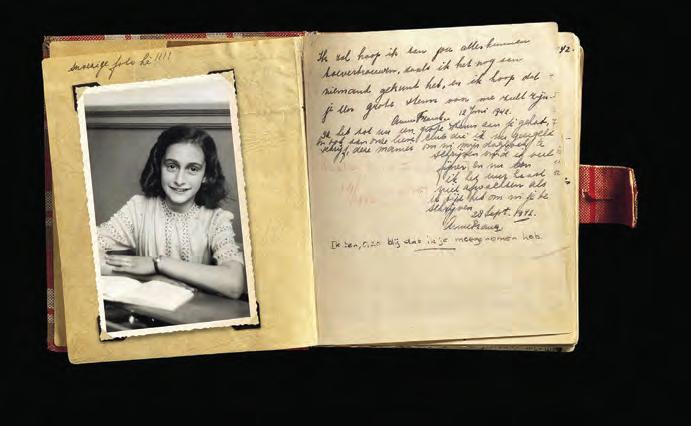 snoezige foto hè!!!!
Ik zal hoop ik aan jou alles kunnen
toevertrouwen, zoals ik het nog aan
niemand gekund heb, en ik hoop dat
je een grote steun voor me zult zijn.
Anne Frank. 12 Juni 1942.
Ik heb tot nu een grote steun aan je gehad,
en ook aan onze lieve club die ik nu geregeld
schrijf, deze manier om in mijn dagboek te
schrijven vind ik veel
fijner en nu kan
ik het uurtje haast
niet afwachten als
ik tijd heb om in je te
schrijven.
28 Sept. 1942.
Anne Frank.
Ik ben, o, zo blij dat ik je meegenomen heb.